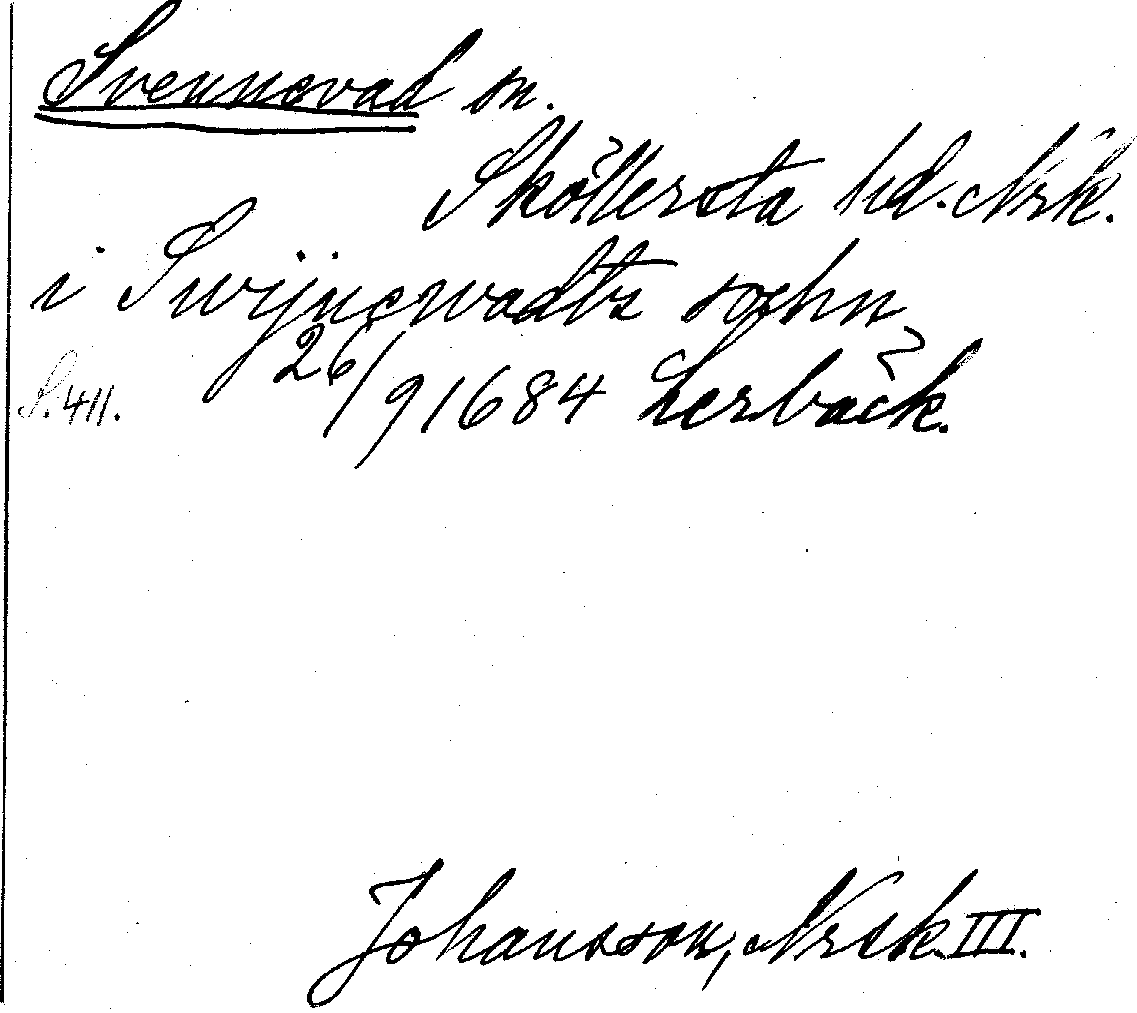 Svennevad sn.
Sköllersta hd. Nrk.
i Swijnewadtz sochn
S. 411. 26/9 1684 Lerbäck.
Johansson, Nrsk. III.